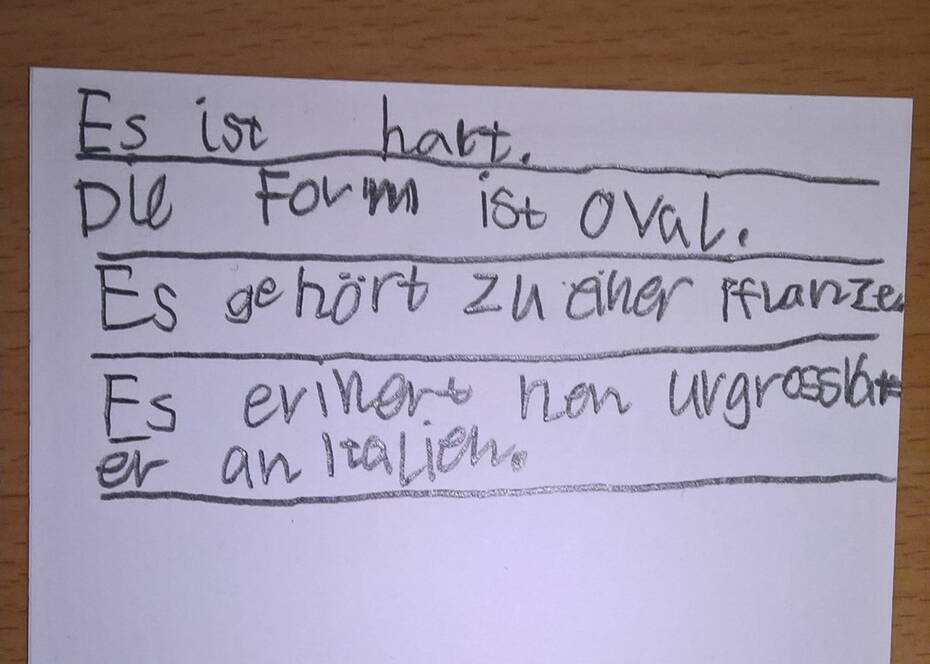 Es ist hart.
Die Form ist oval.
Es gehört zu einer Pflanze.
Es erinert nen urgrossvat
er an Italien.